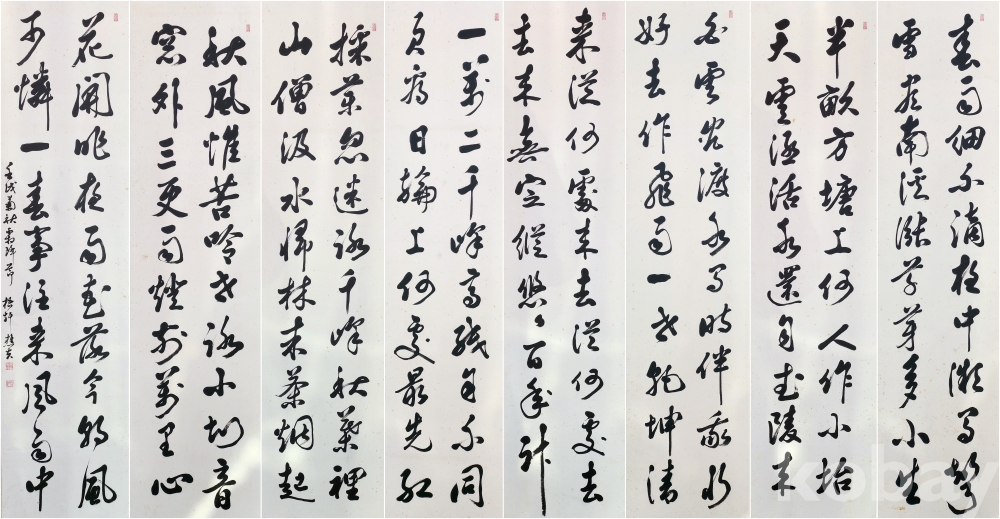 春雨細不滴夜中微有聲
雪盡南溪漲草芽多少生
半畝方塘上何人作小坮
天雲涵活水還自武陵來
白雲渡水有時伴我行
好去作飛雨一世乾坤清
來從何處來去從何處去
去來無定蹤悠悠百年計
一萬二千峰高低自不同
君看日輪上何處最先紅
採藥忽迷路千峰秋葉裡
山僧汲水歸林末茶烟起
秋風惟苦吟世路小知音
窓外三更雨燈前萬里心
花開昨夜雨花落今朝風
可憐一春事往來風雨中
壬戌菊秋霜降節
kobay